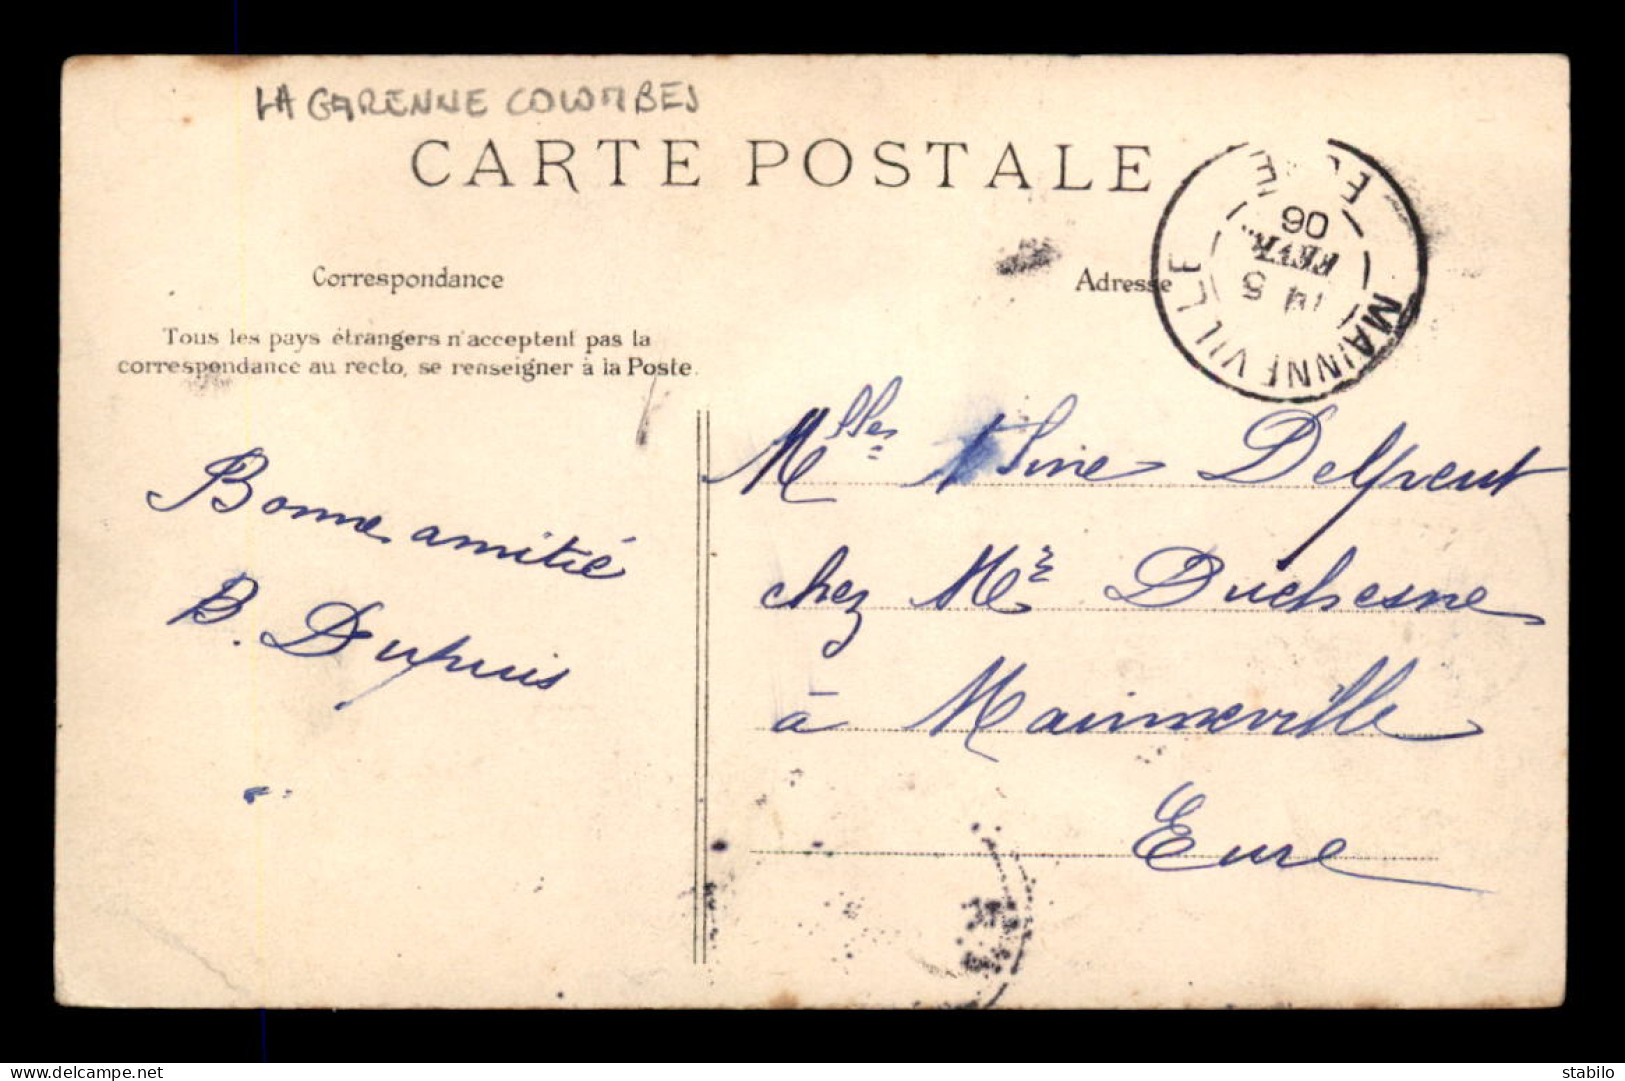 LA GARENNE COLOMBES
CARTE POSTALE
Correspondance
Adresse
Tous les pays étrangers n'acceptent pas la
correspondance au recto, se renseigner à la Poste.
MAINNEVILLE
5
FEVR.
06
Bonne amitié
B. Dupuis
Mlles Aline Delpeut
chez Mr Duchesne
à Mainneville
Eure
delcampe.net
stabilo